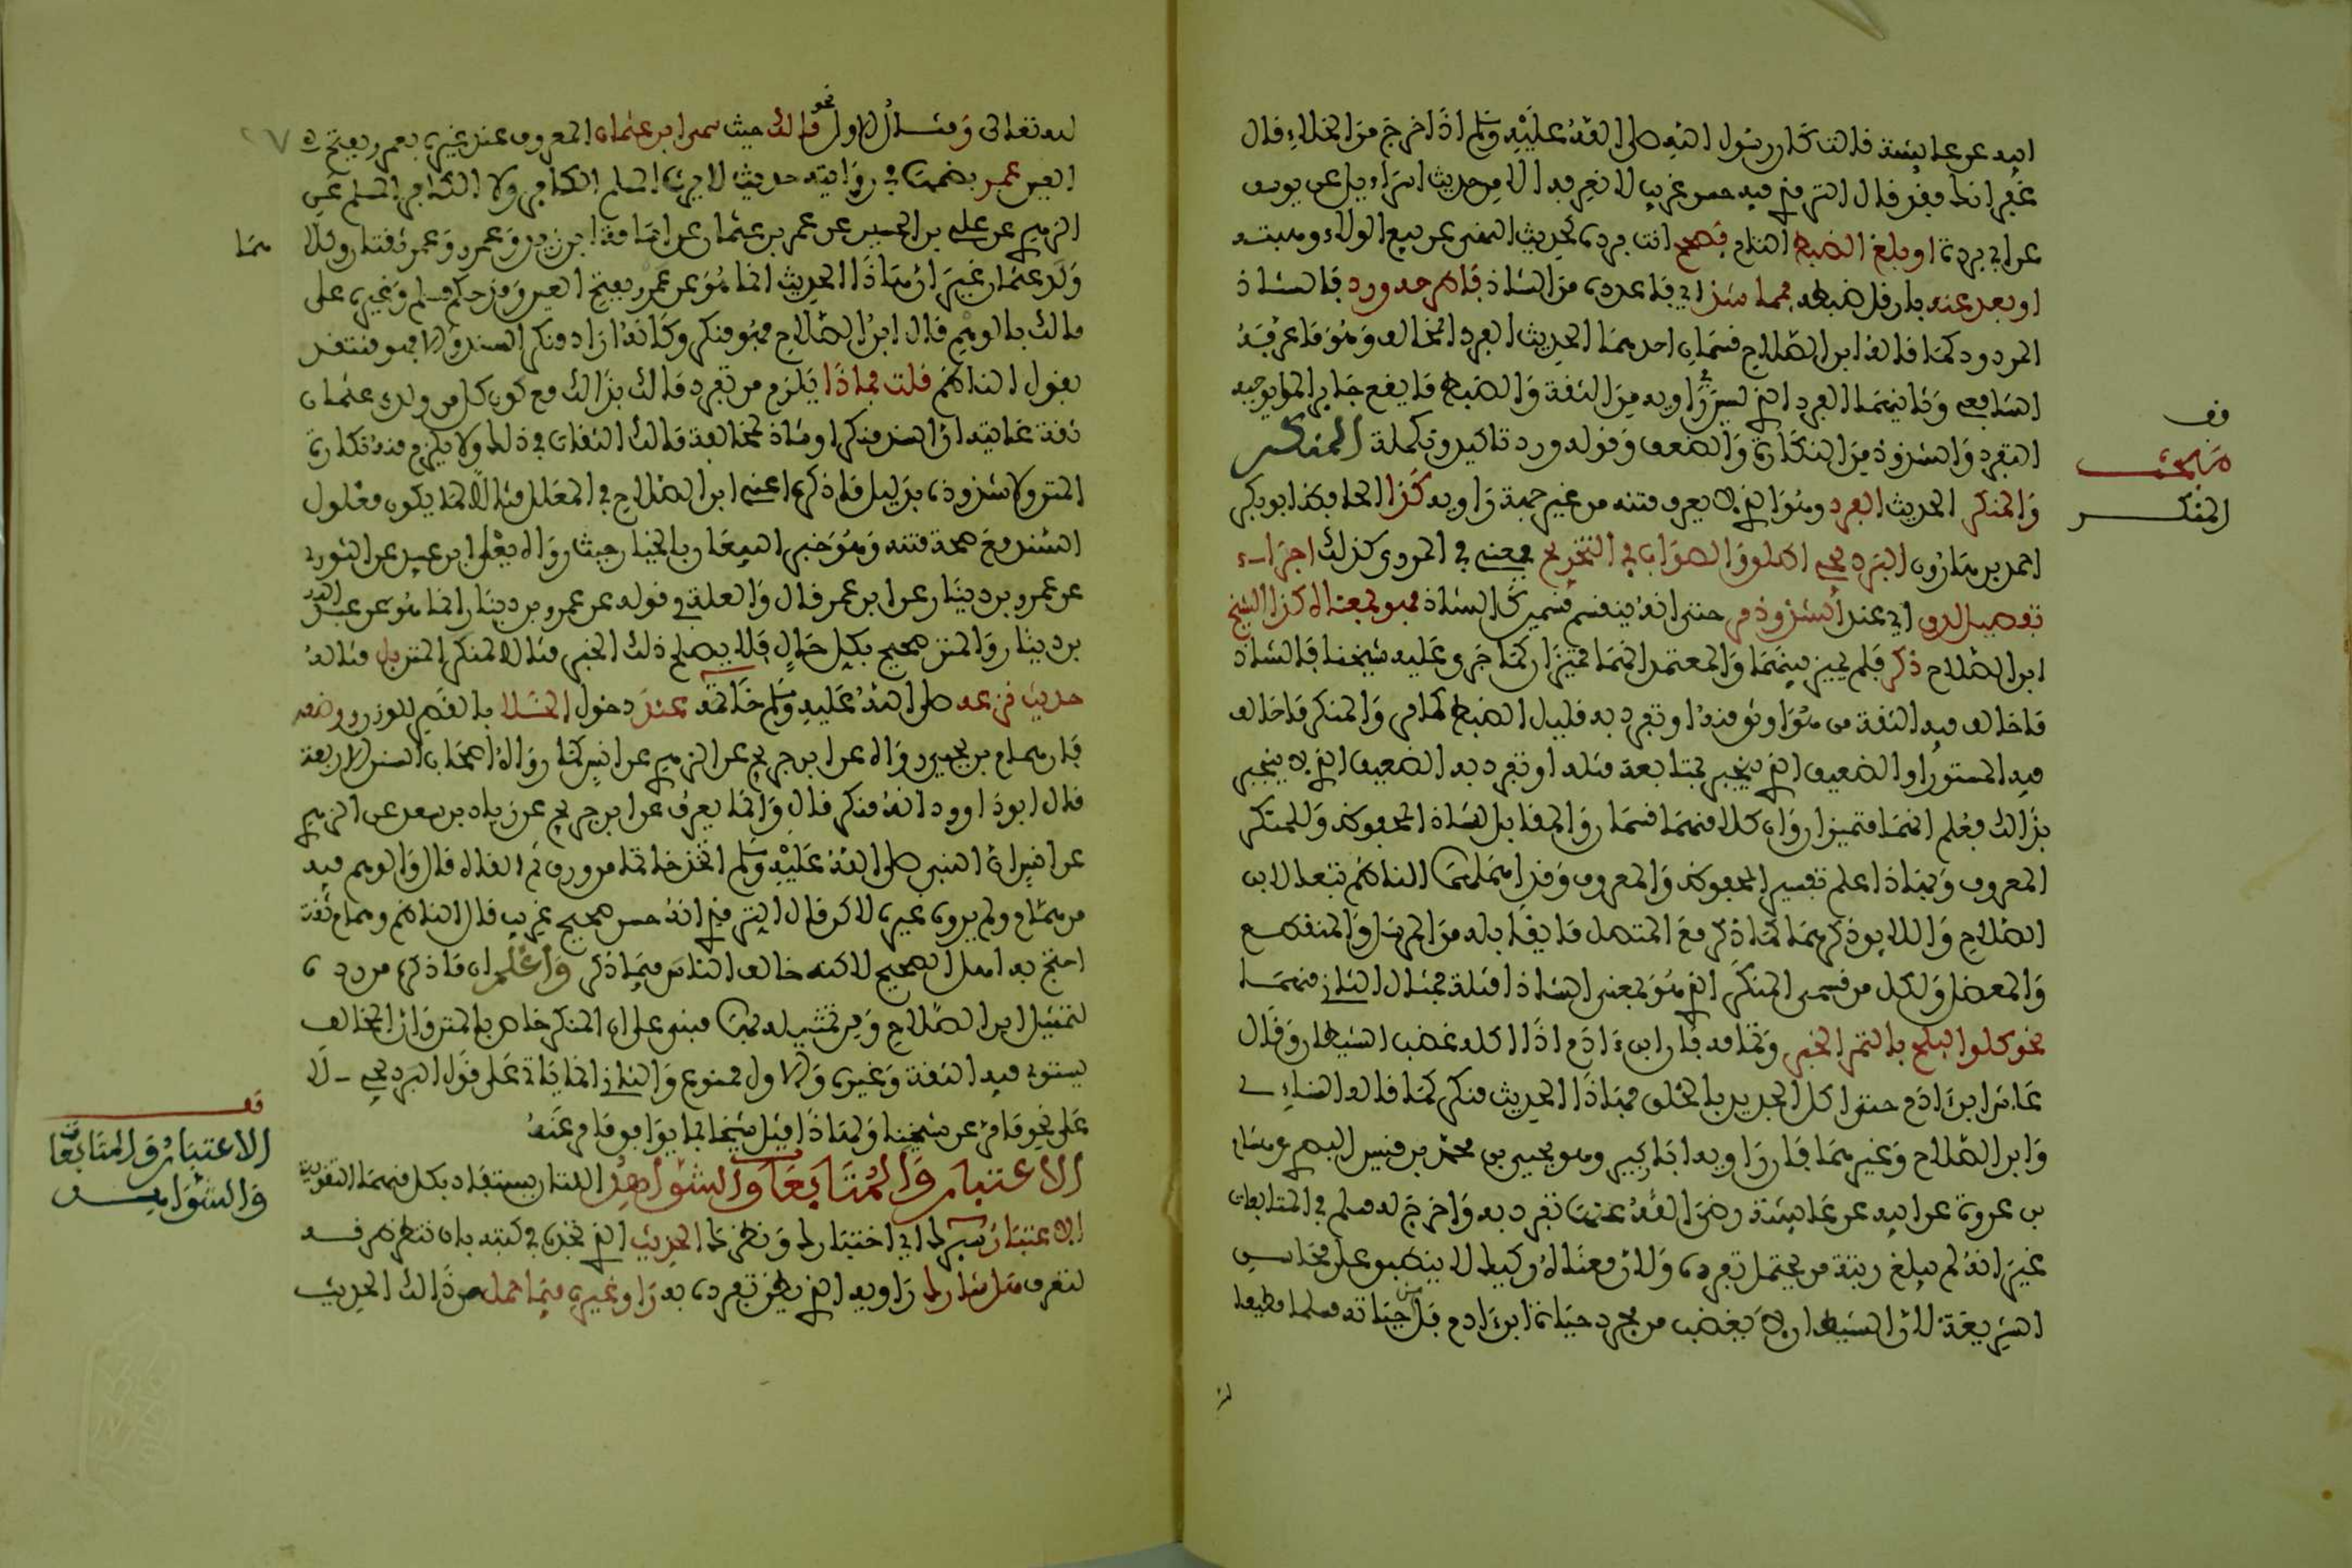 ابيه عن عائشة قالت كان رسول الله صلى الله عليه وسلم اذا خرج من الخلاء قال
غفرانك فقد قال الترمذي فيه حسن غريب لا نعرفه الا من حديث اسراءيل عن يوسف
عن ابي بردة او بلغ الضبط التام فصحح انت فرده كحديث النهي عن بيع الولاء وهبته
او بعد عنه بان قل ضبطه فمما شذ اي فاعدده من الشاذ فاطرحه ورد فالشاذ
المردود كما قاله ابن الصلاح قسمان احدهما الحديث الفرد المخالف وهو ما عرفه
الشافعي وثانيهما الفرد الذي ليس في راويه من الثقة والضبط ما يقع جابرا لما يوجبه
التفرد والشذوذ من النكارة والضعف وقوله ورد تاكيد وتكملة المنكر
والمنكر الحديث الفرد وهو الذي لا يعرف متنه من غير جهة راويه كذا الحافظ ابو بكر
احمد بن هارون البرديجي اطلق والصواب في التخريج يعني في المروي كذلك اجراء
تفصيل لدى اي عند الشذوذ مر حتى انه ينقسم قسمين كالشاذ فهو بمعناه كذا الشيخ
ابن الصلاح ذكر فلم يميز بينهما والمعتمد انهما متميزان كما جرى عليه شيخنا فالشاذ
ما خالف فيه الثقة من هو اوثق منه او تفرد به قليل الضبط كما مر والمنكر ما خالف
فيه المستور او الضعيف الذي ينجبر بمتابعة مثله او تفرد به الضعيف الذي لا ينجبر
بذالك فعلم انهما متميزان وان كلا منهما قسمان والمقابل للشاذ المحفوظ وللمنكر
المعروف وبهاذا علم تفسير المحفوظ والمعروف وقد اهملهما الناظم تبعا لابن
الصلاح واللايق ذكرهما كما ذكر مع المتصل ما يقابله من المرسل والمنقطع
والمعضل ولكل من قسمي المنكر الذي هو بمعنى الشاذ امثلة فمثال الثاني منهما
نحو كلوا البلح بالتمر الخبر وتمامه فان ابن ءادم اذا اكله غضب الشيطان وقال
عاش ابن ءادم حتى اكل الجديد بالخلق فهاذا الحديث منكر كما قاله النساءي
وابن الصلاح وغيرهما فان راويه ابا زكير وهو يحيى بن محمد بن قيس البصري عن هشام
بن عروة عن ابيه عن عائشة رضي الله عنها تفرد به واخرج له مسلم في المتابعات
غير انه لم يبلغ رتبة من يحتمل تفرده ولان معناه ركيك لا ينطبق على محاسن
الشريعة لان الشيطان لا يغضب من مجرد حياة ابن ءادم بل من حياته مسلما مطيعا
قف
مبحث
المنكر
لله تعالى ومثال الاول نحو مالك حيث سمى ابن عثمان المعروف عند غيره بعمرو بفتح
العين عمر بضمها في روايته حديث لا يرث المسلم الكافر ولا الكافر المسلم عن
الزهري عن علي بن الحسين عن عمر بن عثمان عن اسامة بن زيد وعمرو وعمر ثقتان وكلاهما
ولد عثمان غير ان هاذا الحديث انما هو عن عمرو بفتح العين وقد حكم مسلم وغيره على
مالك بالوهم قال ابن الصلاح فهو منكر وكانه اراد منكر السند والا فهو منتقد
بقول الناظم قلت فماذا يلزم من تفرد مالك بذالك مع كون كل من ولدي عثمان
ثقة غايته ان السند منكر او شاذ لمخالفة مالك الثقات في ذلك ولا يلزم منه نكارة
المتن ولا شذوذه بدليل ما ذكره اعني ابن الصلاح في المعلل مثالا لما يكون معلول
السند مع صحة متنه وهو خبر البيعان بالخيار حيث رواه يعلى بن عبيد عن الثوري
عن عمرو بن دينار عن ابن عمر قال والعلة في قوله عن عمرو بن دينار انما هو عن عبد الله
بن دينار والمتن صحيح بكل حال فلا يصلح ذلك الخبر مثالا لمنكر المتن بل مثاله
حديث نزعه صلى الله عليه وسلم خاتمه عند دخول الخلا بالقصر للوزن ووضعه
فان همام بن يحيى رواه عن ابن جريج عن الزهري عن انس كما رواه اصحاب السنن الاربعة
قال ابو داوود انه منكر قال وانما يعرف عن ابن جريج عن زياد بن سعد عن الزهري
عن انس ان النبي صلى الله عليه وسلم اتخذ خاتما من ورق ثم القاه قال والوهم فيه
من همام ولم يروه غيره لاكن قال الترمذي انه حسن صحيح غريب قال الناظم وهمام ثقة
احتج به اهل الصحيح لاكنه خالف الناس فيما ذكر واعلم ان ما ذكره من رده
لتمثيل ابن الصلاح ومن تمثيله لهما مبني على ان المنكر خاص بالمتن وان المخالف
يستوي فيه الثقة وغيره والاول ممنوع والثاني انما ياتي على قول البرديجي لا
على نحو ما مر عن شيخنا ولهاذا مثل شيخنا بما يوافق ما مر عنه
الاعتبار والمتابعات والشواهد اللتان يستفاد بكل منهما التقوية
الاعتبار سبرك اي اختبارك ونظرك الحديث الذي تجده في كتبه بان تنظر طرقه
لتعرف هل شارك راويه الذي يظن تفرده به راو غيره فيما حمل من ذالك الحديث
قف
الاعتبار والمتابعات
والشواهد